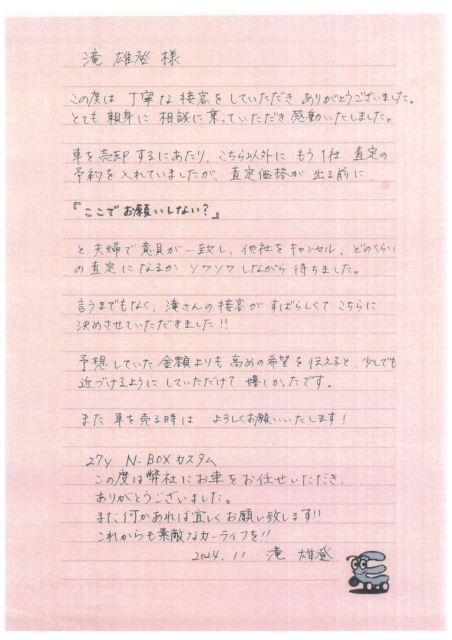 滝 雄登 様
この度は 丁寧な 接客をしていただき ありがとうございました。
とても 親身に 相談に乗っていただき 感動いたしました。
車を売却するにあたり、こちら以外に もう1社 査定の
予約を入れていましたが、査定価格が 出る前に
『ここでお願いしない?』
と夫婦で意見が一致し、他社をキャンセル、どのくらい
の査定になるか ソワソワしながら 待ちました。
言うまでもなく、滝さんの接客が すばらしくて こちらに
決めさせていただきました!!
予想していた金額よりも 高めの希望を伝えると、少しでも
近づけるように していただけて 嬉しかったです。
また 車を売る時は よろしくお願いいたします!
27y N-BOXカスタム
この度は弊社にお車をお任せいただき、
ありがとうございました。
また何かあれば宜しくお願い致します!!
これからも素敵なカーライフを!!
2024.11 滝 雄登